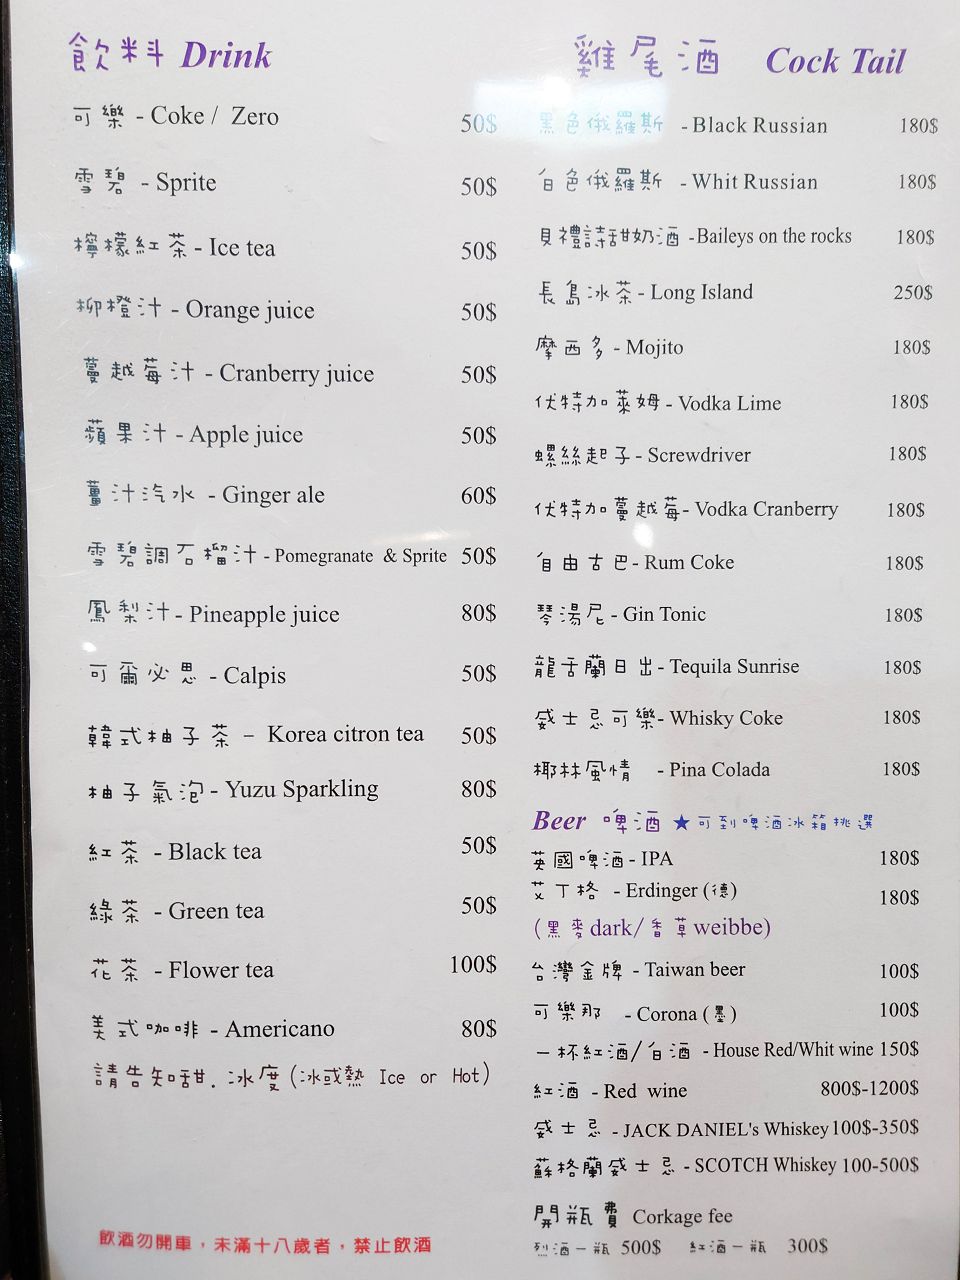 飲料 Drink
可樂 - Coke / Zero 50$
雪碧 - Sprite 50$
檸檬紅茶 - Ice tea 50$
柳橙汁 - Orange juice 50$
蔓越莓汁 - Cranberry juice 50$
蘋果汁 - Apple juice 50$
薑汁汽水 - Ginger ale 60$
雪碧調石榴汁 - Pomegranate & Sprite 50$
鳳梨汁 - Pineapple juice 80$
可爾必思 - Calpis 50$
韓式柚子茶 - Korea citron tea 50$
柚子氣泡 - Yuzu Sparkling 80$
紅茶 - Black tea 50$
綠茶 - Green tea 50$
花茶 - Flower tea 100$
美式咖啡 - Americano 80$
請告知甜.冰度(冰或熱 Ice or Hot)
飲酒勿開車,未滿十八歲者,禁止飲酒
雞尾酒 Cock Tail
黑色俄羅斯 - Black Russian 180$
白色俄羅斯 - Whit Russian 180$
貝禮詩甜奶酒 -Baileys on the rocks 180$
長島冰茶 - Long Island 250$
摩西多 - Mojito 180$
伏特加萊姆 - Vodka Lime 180$
螺絲起子 - Screwdriver 180$
伏特加蔓越莓- Vodka Cranberry 180$
自由古巴 - Rum Coke 180$
琴湯尼 - Gin Tonic 180$
龍舌蘭日出 - Tequila Sunrise 180$
威士忌可樂- Whisky Coke 180$
椰林風情 - Pina Colada 180$
Beer 啤酒 ★可到啤酒冰箱挑選
英國啤酒 - IPA 180$
艾丁格 - Erdinger (德) 180$
(黑麥dark/香草weibbe)
台灣金牌 - Taiwan beer 100$
可樂那 - Corona (墨) 100$
一杯紅酒/白酒 - House Red/Whit wine 150$
紅酒 - Red wine 800$-1200$
威士忌 - JACK DANIEL's Whiskey 100$-350$
蘇格蘭威士忌 - SCOTCH Whiskey 100-500$
開瓶費 Corkage fee
烈酒一瓶 500$ 紅酒一瓶 300$